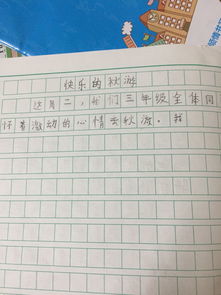 快乐的秋游
这周二，我们三年级全体同
怀着激动的心情去秋游。我